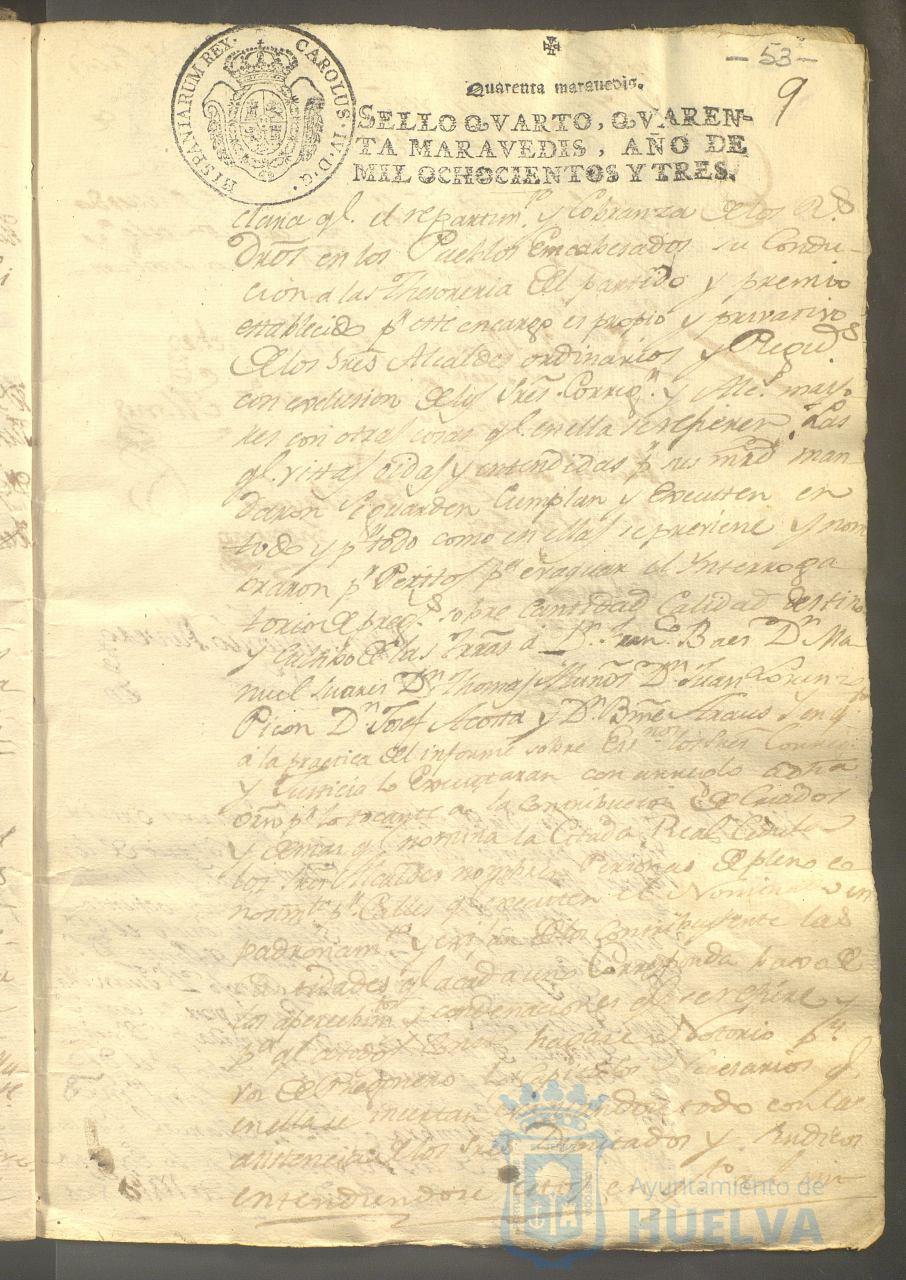 HISPANIARUM REX. CAROLUS. IV. D. G.
- 53 -
9
Quarenta maravedis.
SELLO QVARTO, QVAREN-
TA MARAVEDIS, AÑO DE
MIL OCHOCIENTOS Y TRES.
clara ql. el repartimto. y Cobranza de los Rs
Dros en los Pueblos Encabesados su Condu-
cion a las Thesoreria del partido y premio
establecido pa este encargo es propio y privativo
de los Sres Alcaldes ordinarios y Regids
con exclusion de los Sres. Corregrs. y Alcs. mayo
res con otras cosas ql. en ella se refieren. Las
ql. vistas oidas y entendidas pr sus mrds man
daron se guarden Cumplan y executen en
todo y pr todo como en ellas se previene y nom
braron pr Peritos pa evaquar el Ynterroga
torio de pregs sobre Cantidad Calidad destino
y Cultibo de las Trras a Dn. Juan Baes Dn Ma
nuel Suares Dn Thomas Muños Dn Juan Lorenzo
Picon Dn Josef Acosta y Dn Bme Araus y en qto
a la practica del informe sobre los Sres Correg
y Justicia lo Executaran con arreglo a dha
orn pr lo tocante a la Contribucion de Criados
y demas q nomina la Citada Real Cedula
los Sres Alcaldes nombren Personas de pleno co
nosimto pr Calles ql executen el Nominado em
padronamto y exijan de los Contribuyente las
Cantidades ql a cada un Corresponda baxo de
los apercebimtos y condenaciones ql se refiere y
pa ql. hagase Notorio pr
vos de Pregonero los Capitulos Necesarios ql
en ella se insertan todo con la
asistencia de los Sres Diputados y Sindicos
entendiendose estos en
Ayuntamiento de
HUELVA